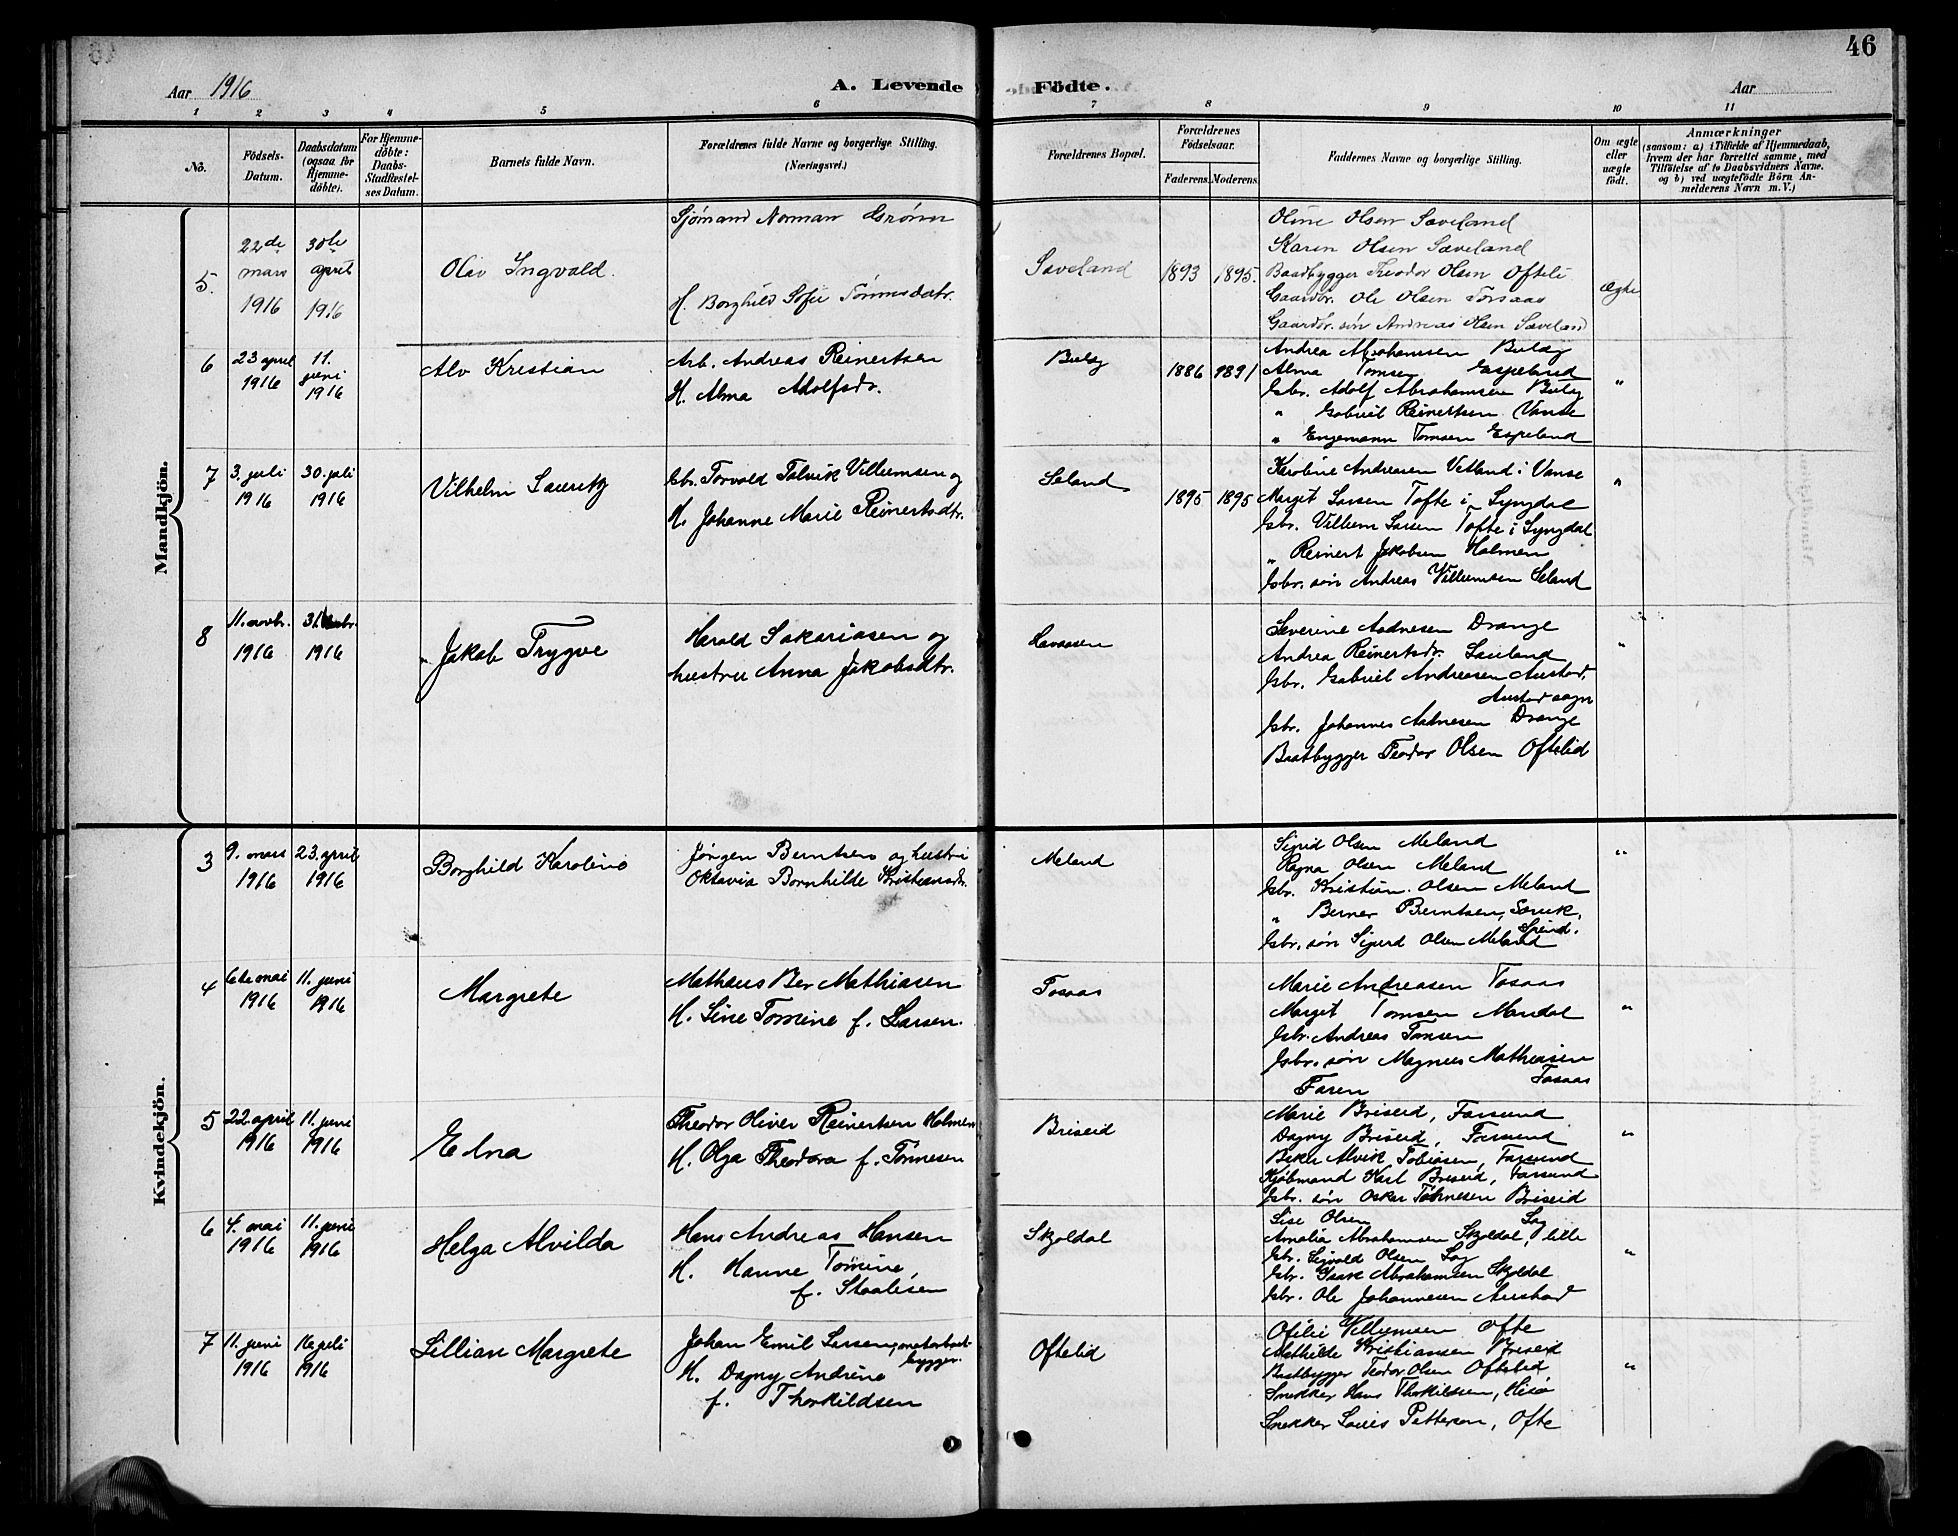 46
Aar 1916
A. Levende Födte.
Aar
1 2 3 4 5 6 7 8 9 10 11
No.
Födsels-Datum.
Daabsdatum (ogsaa for Hjemme-döbte).
For Hjemme-döbte: Daabs-Stadfæstel-ses Datum.
Barnets fulde Navn.
Forældrenes fulde Navne og borgerlige Stilling. (Næringsvei.)
Forældrenes Bopæl.
Forældrenes Födselsaar.
Faderens. Moderens.
Faddernes Navne og borgerlige Stilling.
Om ægte eller uægte födt.
Anmærkninger
(saasom: a) i Tilfælde af Hjemmedaab,
hvem der har forrettet samme, med
Tilföielse af to Daabsvidners Navne.
og b) ved uægtefödte Börn An-
melderens Navn m. V.)
Mandkjön.
5.
22de mars 1916
30te april 1916
Olav Ingvald.
Sjømand Norman Grönn
H. Borghild Sofie Tönnesdatr.
Saveland
1893 1895.
Oline Olsen Saveland
Karen Olsen Saveland
Baadbygger Theodor Olsen Ofteli
Gaardbr. Ole Olsen Torsaas
Gaardbr. søn Andreas Olsen Saveland
Ægte
6
23 april 1916
11. juni 1916
Alv Kristian
Arb. Andreas Reinertsen
H. Alma Adolfsdr.
Buläg
1886 1891
Andrea Abrahamsen Buläg
Alma Tomsen Espeland
Gbr. Adolf Abrahamsen Buläg
" Gabriel Reinertsen Vanse
" Engemann Tomsen Espeland
"
7
3. juli 1916
30. juli 1916
Vilhelm Lauritz
Gbr. Torvald Talvik Villumsen og
H. Johanne Marie Reinertsdtr.
Seland
1895 1895
Karoline Andreasen Vetland i Vanse
Margit Larsen Tofte i Lyngdal
Gbr. Villum Larsen Tofte i Lyngdal
" Reinert Jakobsen Holmen
Gbr. søn Andreas Villumsen Seland
"
8
11. novbr. 1916
31. 1916
Jakob Trygve
Harald Sakariasen og
hustru Anna Jakobsdtr.
Havaasen
Severine Aadnesen Drange
Andrea Reinertsdr. Lauland
Gbr. Gabriel Andreasen Austad,
Austad sogn
Gbr. Johannes Aadnesen Drange
Baatbygger Teodor Olsen Oftelid
"
Kvindekjön.
3
9. mars 1916
23. april 1916
Borghild Karoline
Jörgen Berntsen og hustru
Oktavia Bornhilde Kristiansdr.
Meland
Sigrid Olsen Meland
Ragna Olsen Meland
Gbr. Kristian Olsen Meland
" Berner Berntsen,
Spind.
Gbr. søn Sigurd Olsen Meland
"
4
6te mai 1916
11. juni 1916
Margrete
Mathæus Ber Mathiasen
H. Sine Tomine f. Larsen.
Tosaas
Marie Andreasen Tosaas
Margit Tomsen Mandal
Gbr. Andreas Tomsen
Gbr. søn Magnus Mathiasen
Tosaas
Faren
"
5
22. april 1916
11. juni 1916
Edna
Theodor Oliver Reinertsen Holmen
H. Olga Theodora f. Tönnesen
Briseid
Marie Briseid, Farsund
Dagny Briseid, Farsund
Alvik Tobiasen, Farsund
Kjöbmand Karl Briseid, Farsund
Gbr. søn Oskar Tönnesen Briseid
"
6
4. mai 1916
11. juni 1916
Helga Alvilda
Hans Andreas Hansen
H. Hanne Tomine,
f. Staalesen
Skjoldal
Lise Olsen Log
Amalia Abrahamsen Skjoldal, lille
Gbr. Sigvald Olsen Log
Gbr. Isak Abrahamsen Skjoldal
Gbr. Ole Johannesen Austad
"
7
11. juni 1916
16 juli 1916
Lillian Margrete
Johan Emil Larsen, motorbaat-
bygger.
H. Dagny Andrine
f. Thorkildsen
Oftelid
Ofilie Villumsen Ofte
Mathilde Kristiansen Briseid
Baatbygger Teodor Olsen Oftelid
Snekker Hans Thorkildsen, Hisö
Snekker Louis Pettersen, Ofte
"